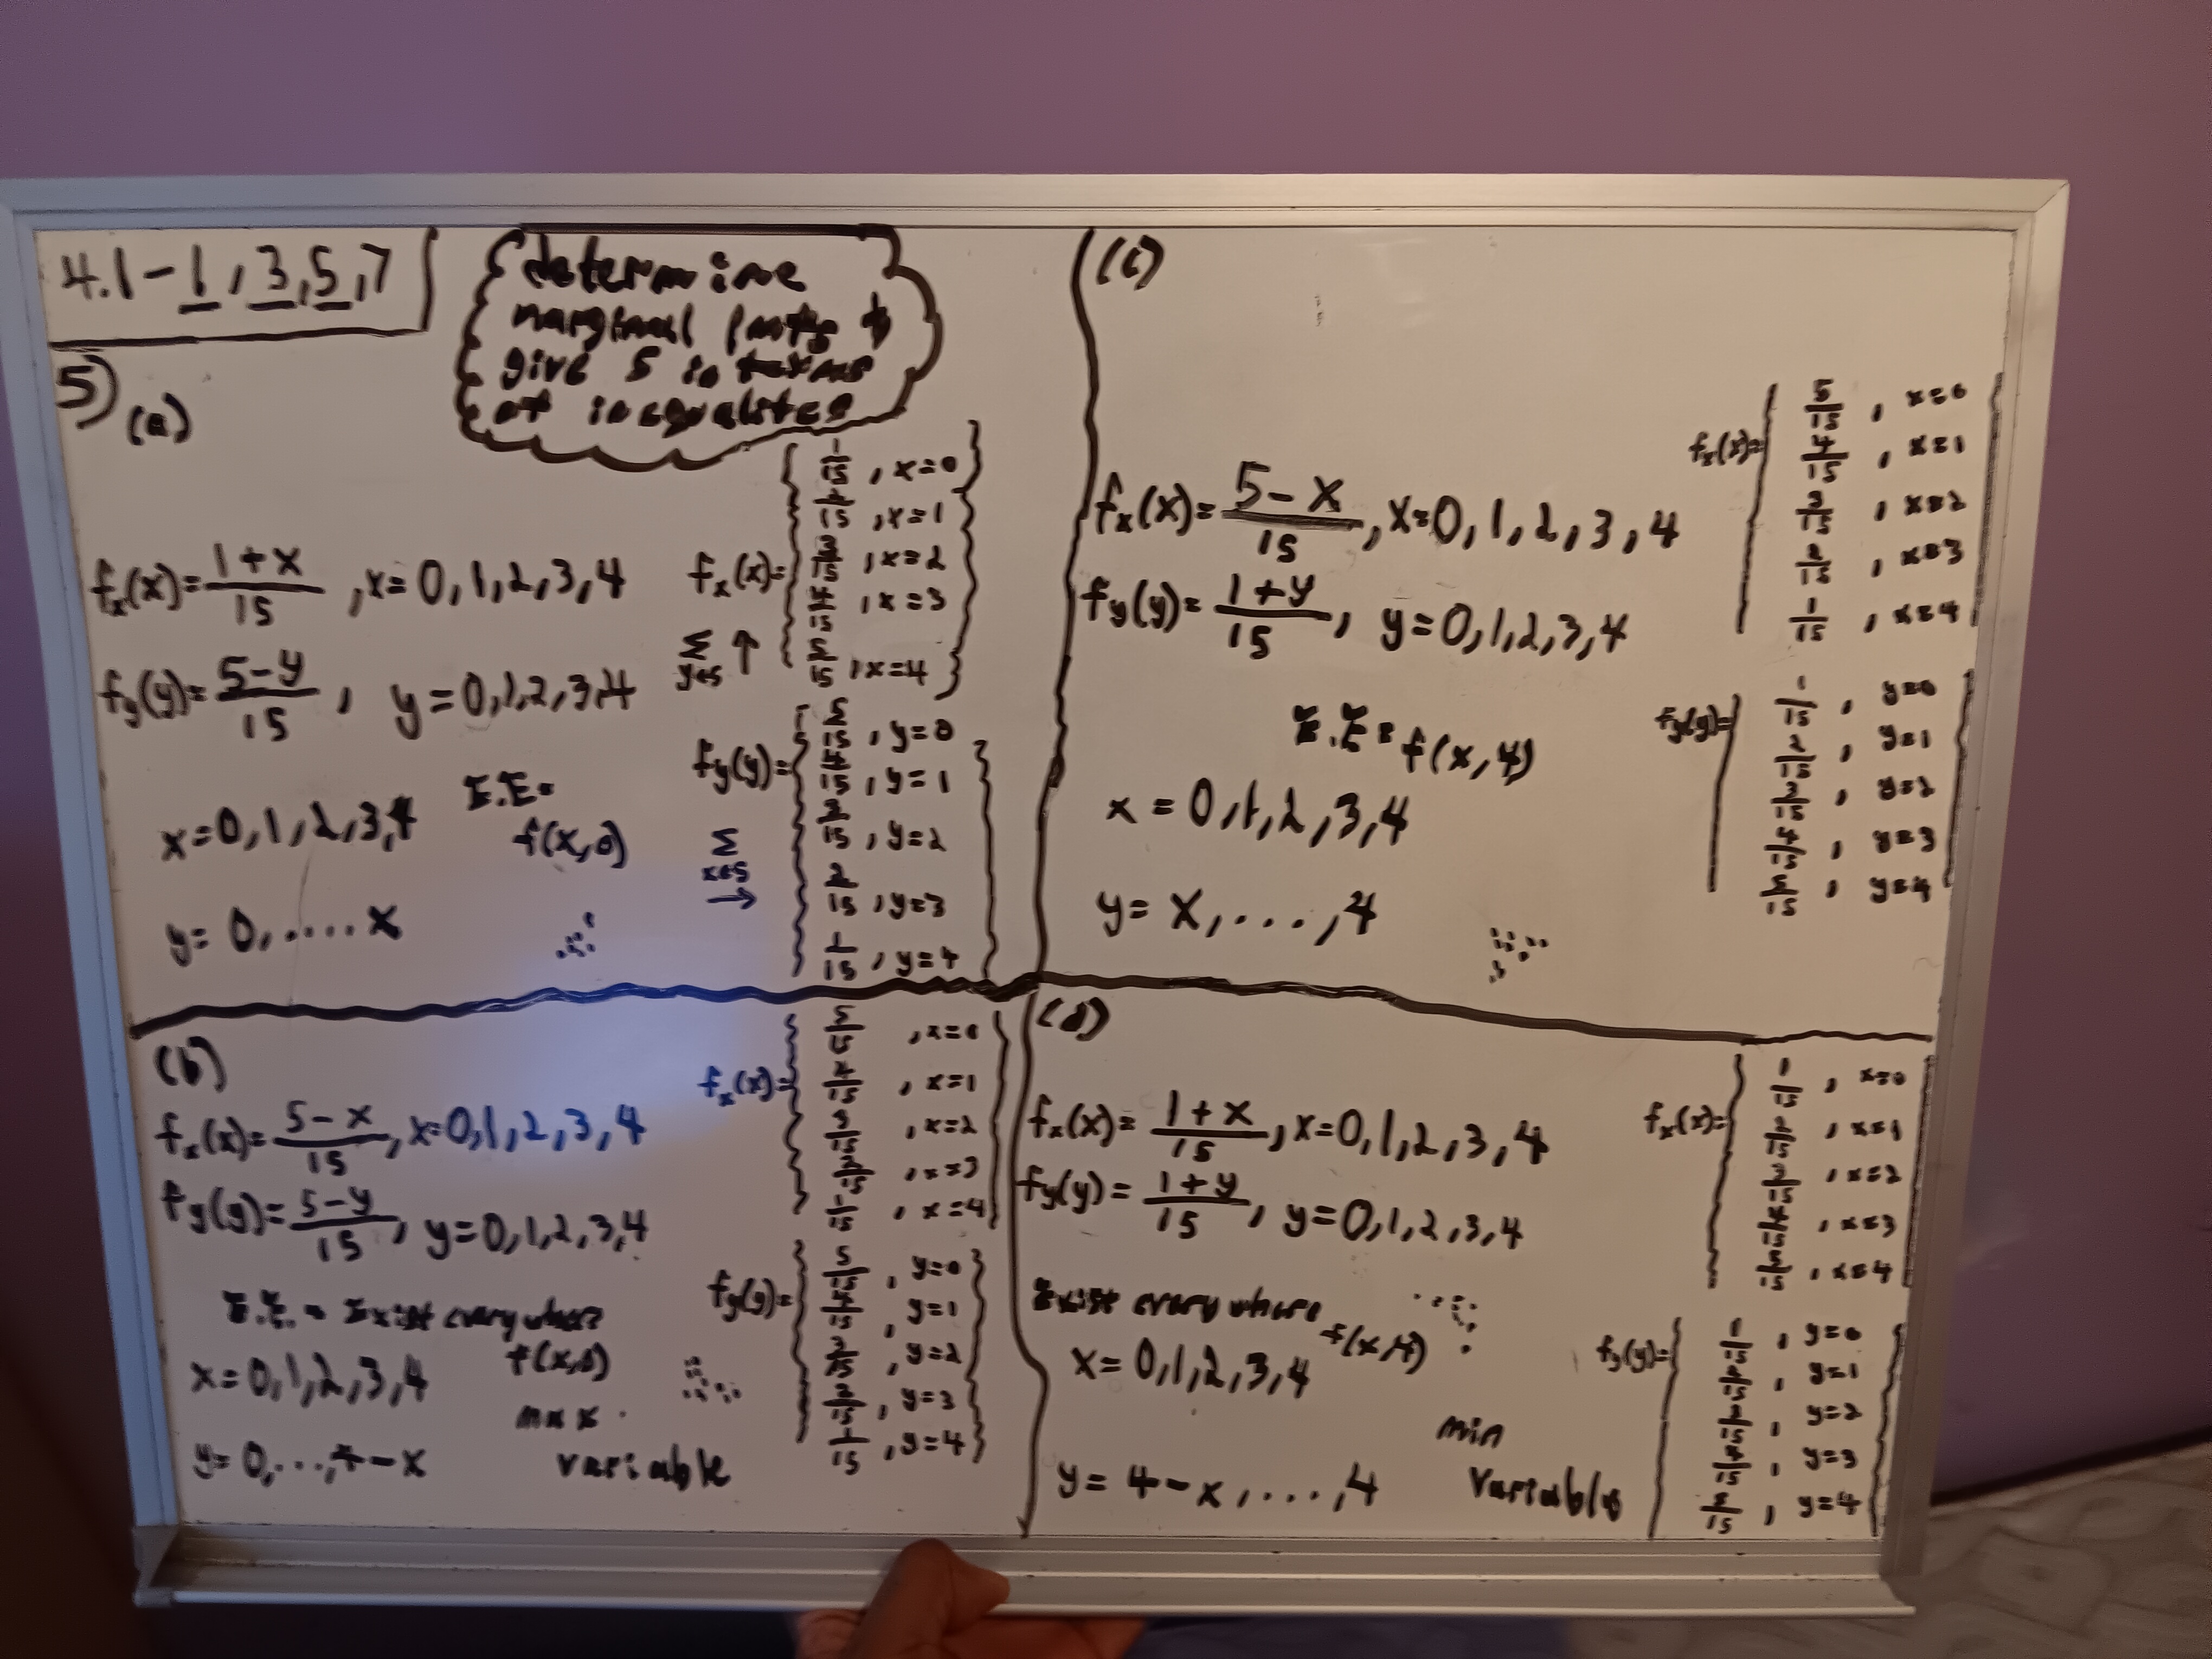 4.1-1,3,5,7
determine
marginal pmfs &
give S in terms
of inequalites
5)
(a)
fₓ(x)=(1+x)/15 ,x=0,1,2,3,4
f_y(y)=(5-y)/15, y=0,1,2,3,4
x=0,1,2,3,4
E.E=
f(x,0)
y=0,.....x
fₓ(x)=
1/15, x=0
2/15, x=1
3/15, x=2
4/15, x=3
5/15, x=4
Σ y∈S ↑
f_y(y)=
5/15, y=0
4/15, y=1
3/15, y=2
2/15, y=3
1/15, y=4
Σ x∈S →
(b)
fₓ(x)=(5-x)/15, x=0,1,2,3,4
f_y(y)=(5-y)/15, y=0,1,2,3,4
E.E.= Exist everywhere
f(x,0)
x=0,1,2,3,4
max
y=0,...,4-x
variable
fₓ(x)=
5/15, x=0
4/15, x=1
3/15, x=2
2/15, x=3
1/15, x=4
f_y(y)=
5/15, y=0
4/15, y=1
3/15, y=2
2/15, y=3
1/15, y=4
(c)
fₓ(x)=(5-x)/15, x=0,1,2,3,4
f_y(y)=(1+y)/15, y=0,1,2,3,4
E.E= f(x,4)
x=0,1,2,3,4
y=x,...,4
fₓ(x)=
5/15, x=0
4/15, x=1
3/15, x=2
2/15, x=3
1/15, x=4
f_y(y)=
1/15, y=0
2/15, y=1
3/15, y=2
4/15, y=3
5/15, y=4
(d)
fₓ(x)=(1+x)/15, x=0,1,2,3,4
f_y(y)=(1+y)/15, y=0,1,2,3,4
Exist everywhere
f(x,4)
x=0,1,2,3,4
min
y=4-x,...,4
variable
fₓ(x)=
1/15, x=0
2/15, x=1
3/15, x=2
4/15, x=3
5/15, x=4
f_y(y)=
1/15, y=0
2/15, y=1
3/15, y=2
4/15, y=3
5/15, y=4